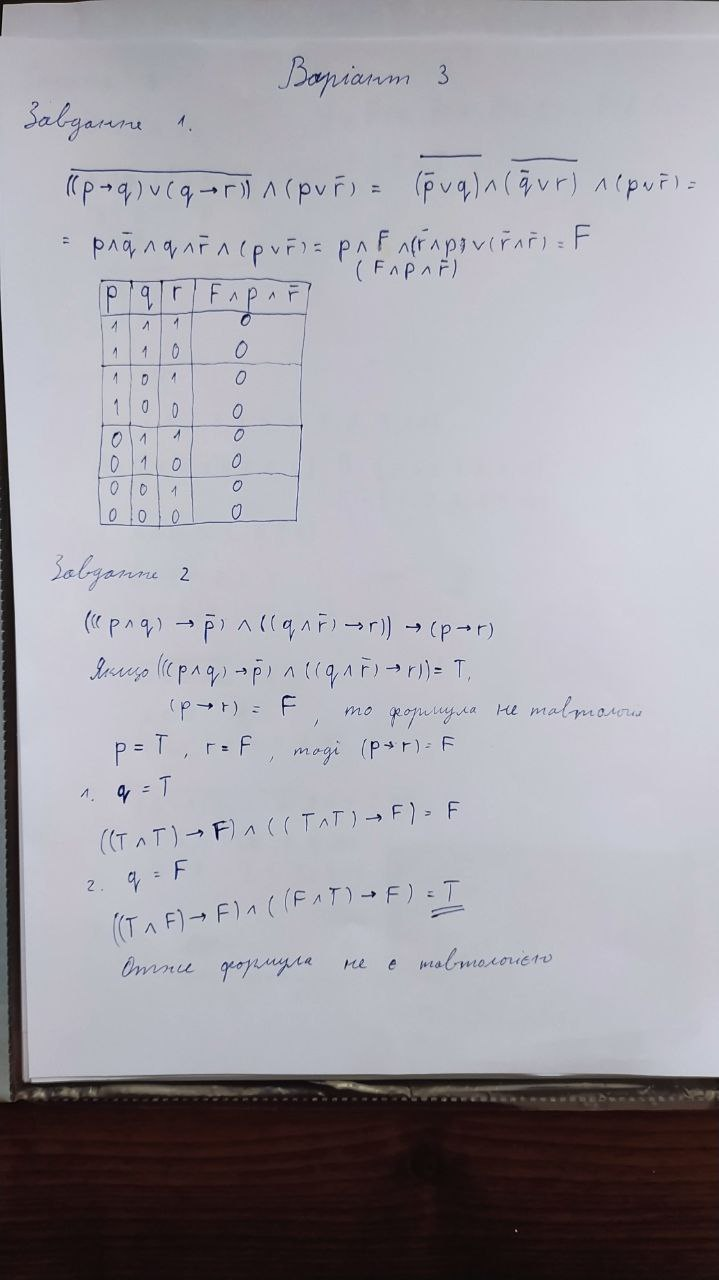 Варіант 3
Завдання 1.
\overline{((p→q)∨(q→r))} ∧(p∨r̄) = \overline{(p̄∨q)}∧\overline{(q̄∨r)} ∧(p∨r̄) =
= p∧q̄∧q∧r̄∧(p∨r̄) = p∧F∧(r̄∧p)∨(r̄∧r̄) = F
(F∧p∧r̄)
p q r F∧p∧r̄
1 1 1 0
1 1 0 0
1 0 1 0
1 0 0 0
0 1 1 0
0 1 0 0
0 0 1 0
0 0 0 0
Завдання 2
(((p∧q) → p̄) ∧((q∧r̄)→r)) → (p→r)
Якщо (((p∧q)→p̄) ∧ ((q∧r̄)→r)) = T,
(p→r) = F, то формула не тавтологія
p = T, r = F, тоді (p→r) = F
1. q = T
((T∧T)→F)∧((T∧T)→F) = F
2. q = F
((T∧F)→F)∧((F∧T)→F) = T
Отже формула не є тавтологією